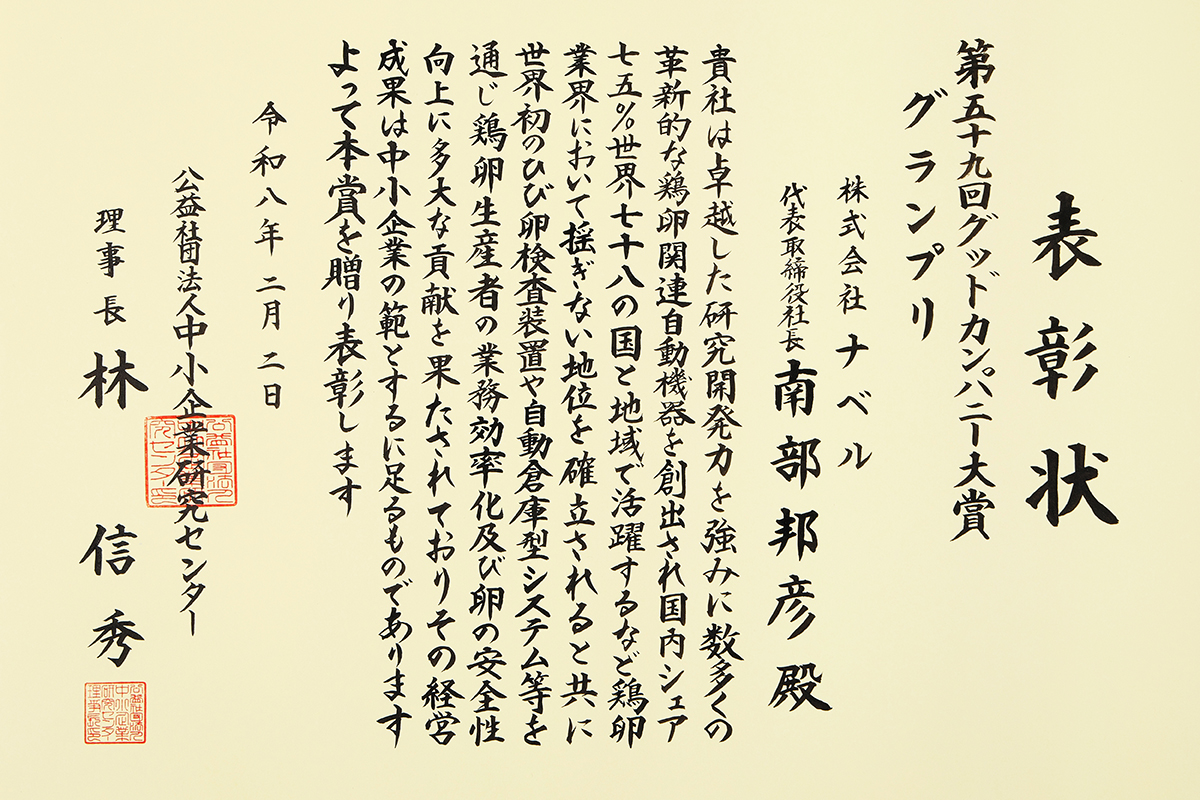 表彰状
第五十九回グッドカンパニー大賞
グランプリ
株式会社ナベル
代表取締役社長 南部邦彦殿
貴社は卓越した研究開発力を強みに数多くの
革新的な鶏卵関連自動機器を創出され国内シェア
七五%世界七十八の国と地域で活躍するなど鶏卵
業界において揺ぎない地位を確立されると共に
世界初のひび卵検査装置や自動倉庫型システム等を
通じ鶏卵生産者の業務効率化及び卵の安全性
向上に多大な貢献を果たされておりその経営
成果は中小企業の範とするに足るものであります
よって本賞を贈り表彰します
令和八年二月二日
公益社団法人中小企業研究センター
理事長 林信秀